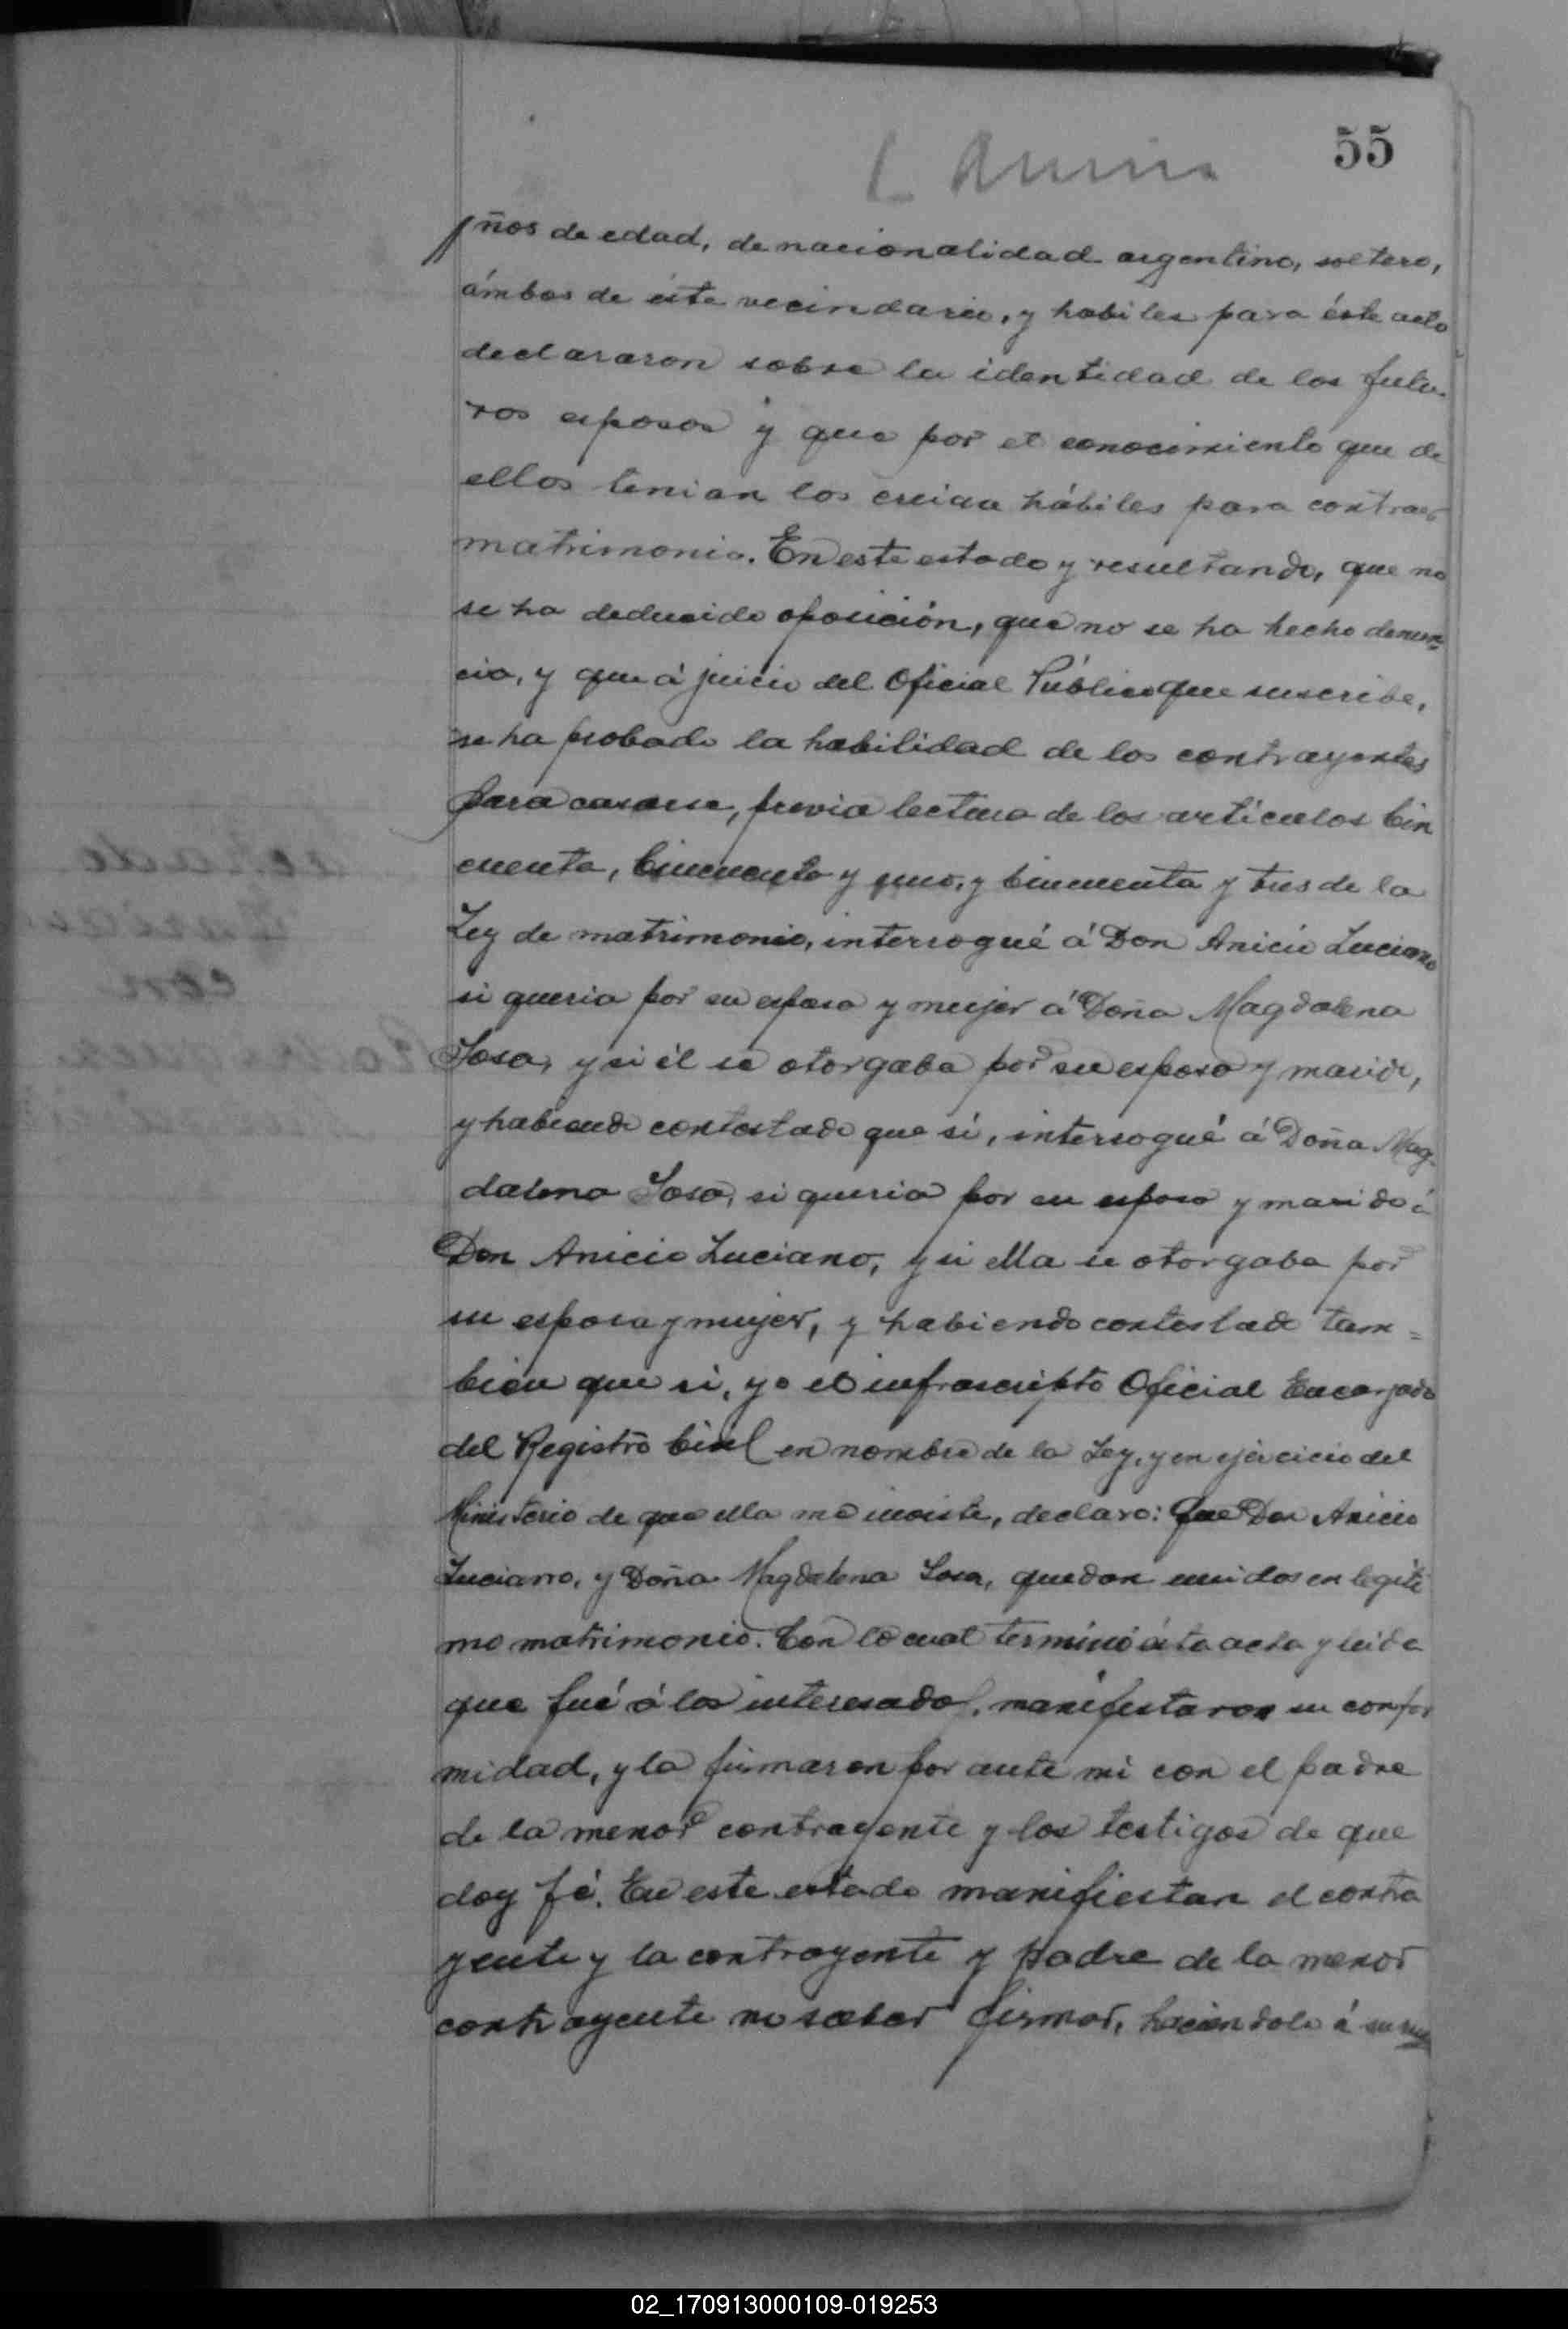 55
ños de edad, de nacionalidad argentino, soltero,
ámbos de éste vecindario, y habiles para éste acto
declararon sobre la identidad de los futu-
ros esposos y que por el conocimiento que de
ellos tenian los creian hábiles para contraer
matrimonio. En este estado y resultando, que no
se ha deducido oposición, que no se ha hecho denun-
cia, y que á juicio del Oficial Público que suscribe,
se ha probado la habilidad de los contrayentes
para casarse, previa lectura de los artículos Cin
cuenta, Cincuenta y uno, y Cincuenta y tres de la
Ley de matrimonio, interrogué á Don Anicio Luciano
si queria por su esposa y mujer á Doña Magdalena
Sosa, y si él se otorgaba por su esposo y marido,
y habiendo contestado que si, interrogué á Doña Mag-
dalena Sosa, si queria por su esposo y marido á
Don Anicio Luciano, y si ella se otorgaba por
su esposa y mujer, y habiendo contestado tam=
bien que si, yo el infrascripto Oficial Encargado
del Registro Civil en nombre de la Ley, y en ejercicio del
Ministerio de que ella me inviste, declaro: Que Don Anicio
Luciano, y Doña Magdalena Sosa, quedan unidos en legíti
mo matrimonio. Con lo cual terminó ésta acta y leida
que fué á los interesados, manifestaron su confor
midad, y la firmaron por ante mi con el padre
de la menor contrayente y los testigos de que
doy fé. En este estado manifiestan el contra
yente y la contrayente y padre de la menor
contrayente no saber firmar, haciendolo á su rue
02_170913000109-019253